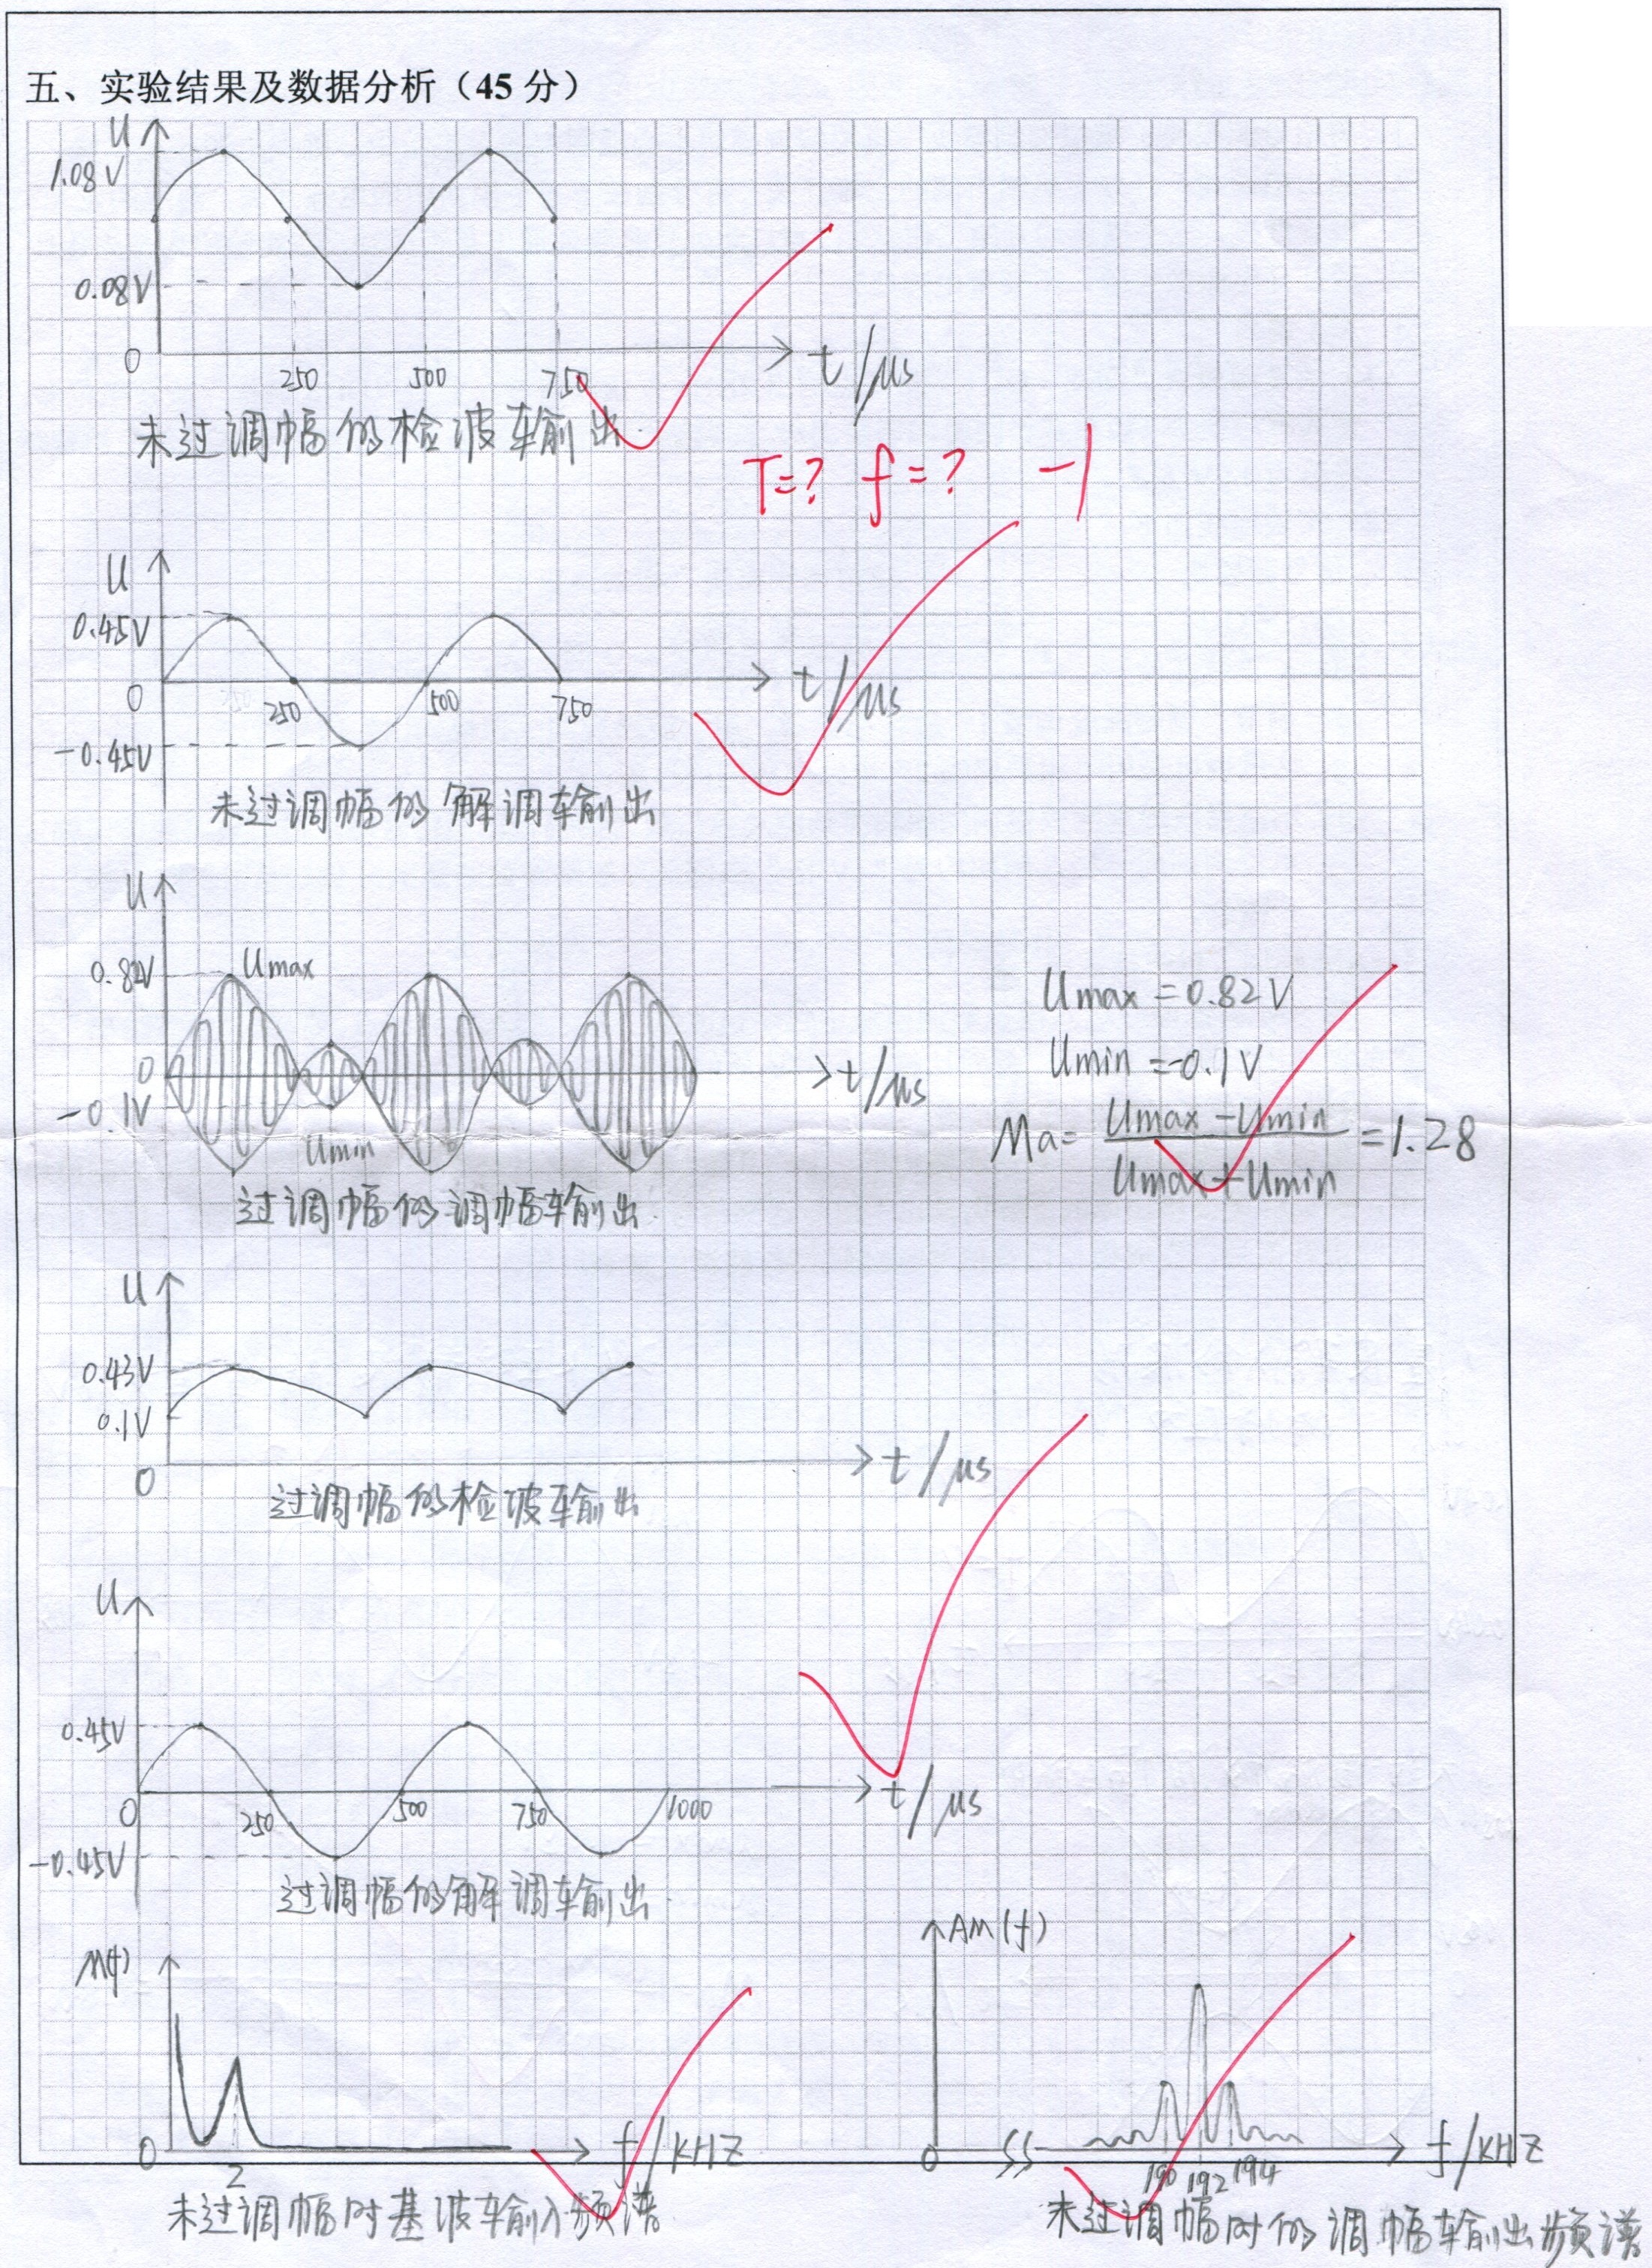 五、实验结果及数据分析（45 分）
U
1.08V
0.08V
0
250 500 750
t/μs
未过调幅的检波输出
T=? f=? -1
U
0.45V
0
250 500 750
t/μs
-0.45V
未过调幅的解调输出
U
0.82V
Umax
0
t/μs
-0.1V
Umin
过调幅的调幅输出
Umax=0.82V
Umin=-0.1V
Ma= Umax-Umin =1.28
Umax+Umin
U
0.43V
0.1V
0
t/μs
过调幅的检波输出
U
0.45V
0
250 500 750 1000
t/μs
-0.45V
过调幅的解调输出
M(f)
0
2
f/KHZ
未过调幅时基波输入频谱
AM(f)
0
190 192 194
f/KHZ
未过调幅时的调幅输出频谱